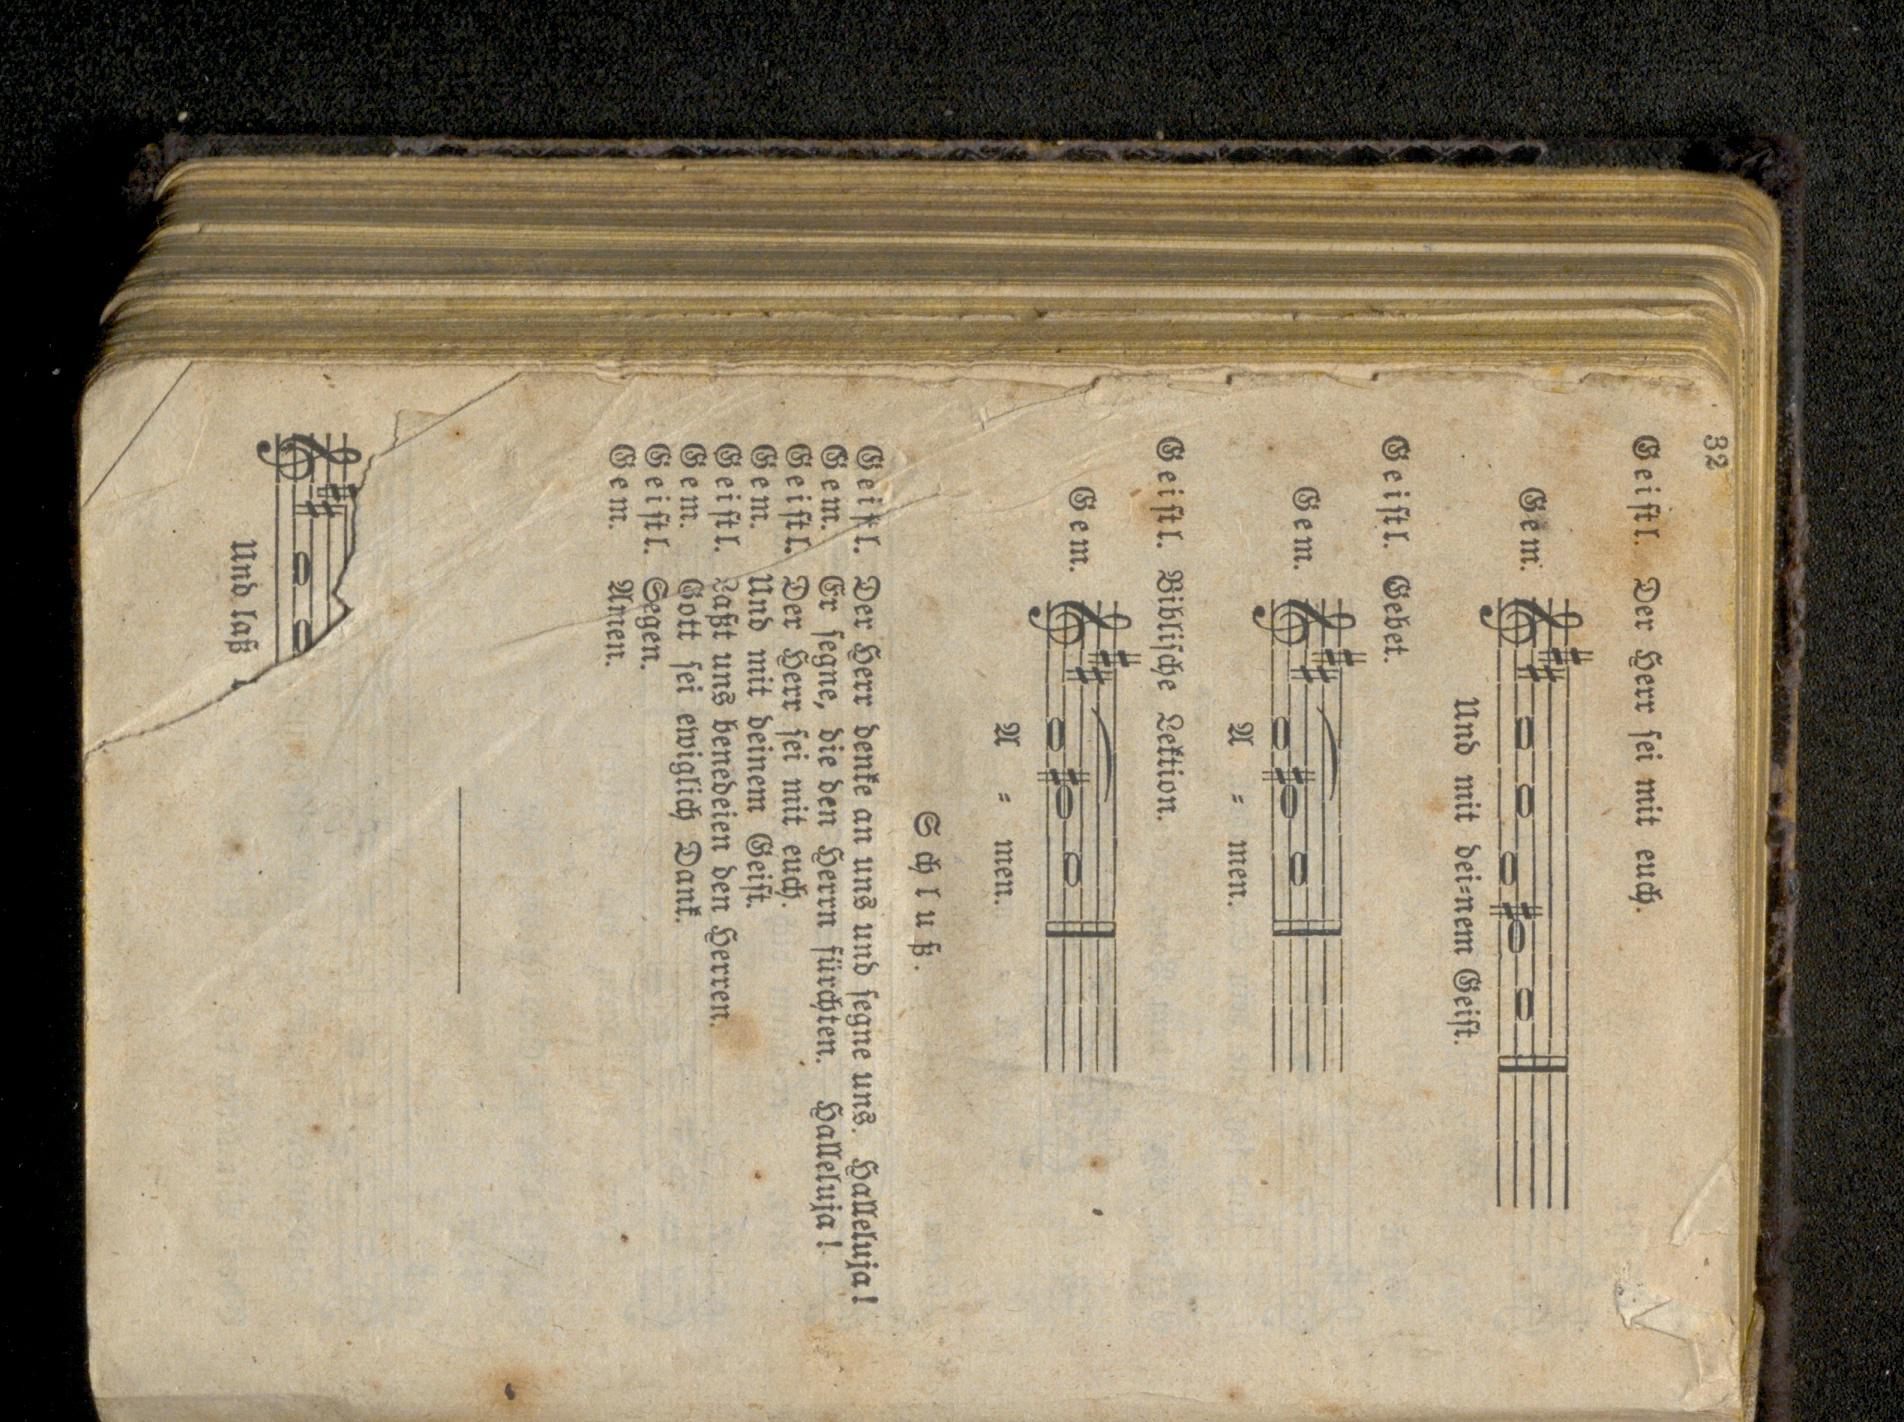 32
Geistl. Der Herr sei mit euch.
Gem.
Und mit dei=nem Geist.
Geistl. Gebet.
Gem.
A = men.
Geistl. Biblische Lektion.
Gem.
A = men.
Schluß.
Geistl. Der Herr denke an uns und segne uns. Halleluja!
Gem. Er segne, die den Herrn fürchten. Halleluja!
Geistl. Der Herr sei mit euch.
Gem. Und mit deinem Geist.
Geistl. Laßt uns benedeien den Herren.
Gem. Gott sei ewiglich Dank.
Geistl. Segen.
Gem. Amen.
Und laß